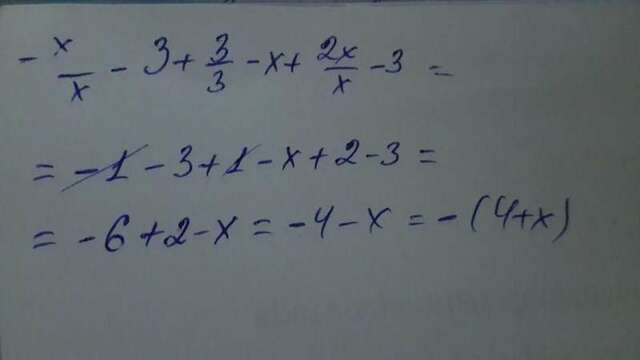 - x/x - 3 + 3/3 - x + 2x/x - 3 =
= -1 - 3 + 1 - x + 2 - 3 =
= -6 + 2 - x = -4 - x = -(4+x)